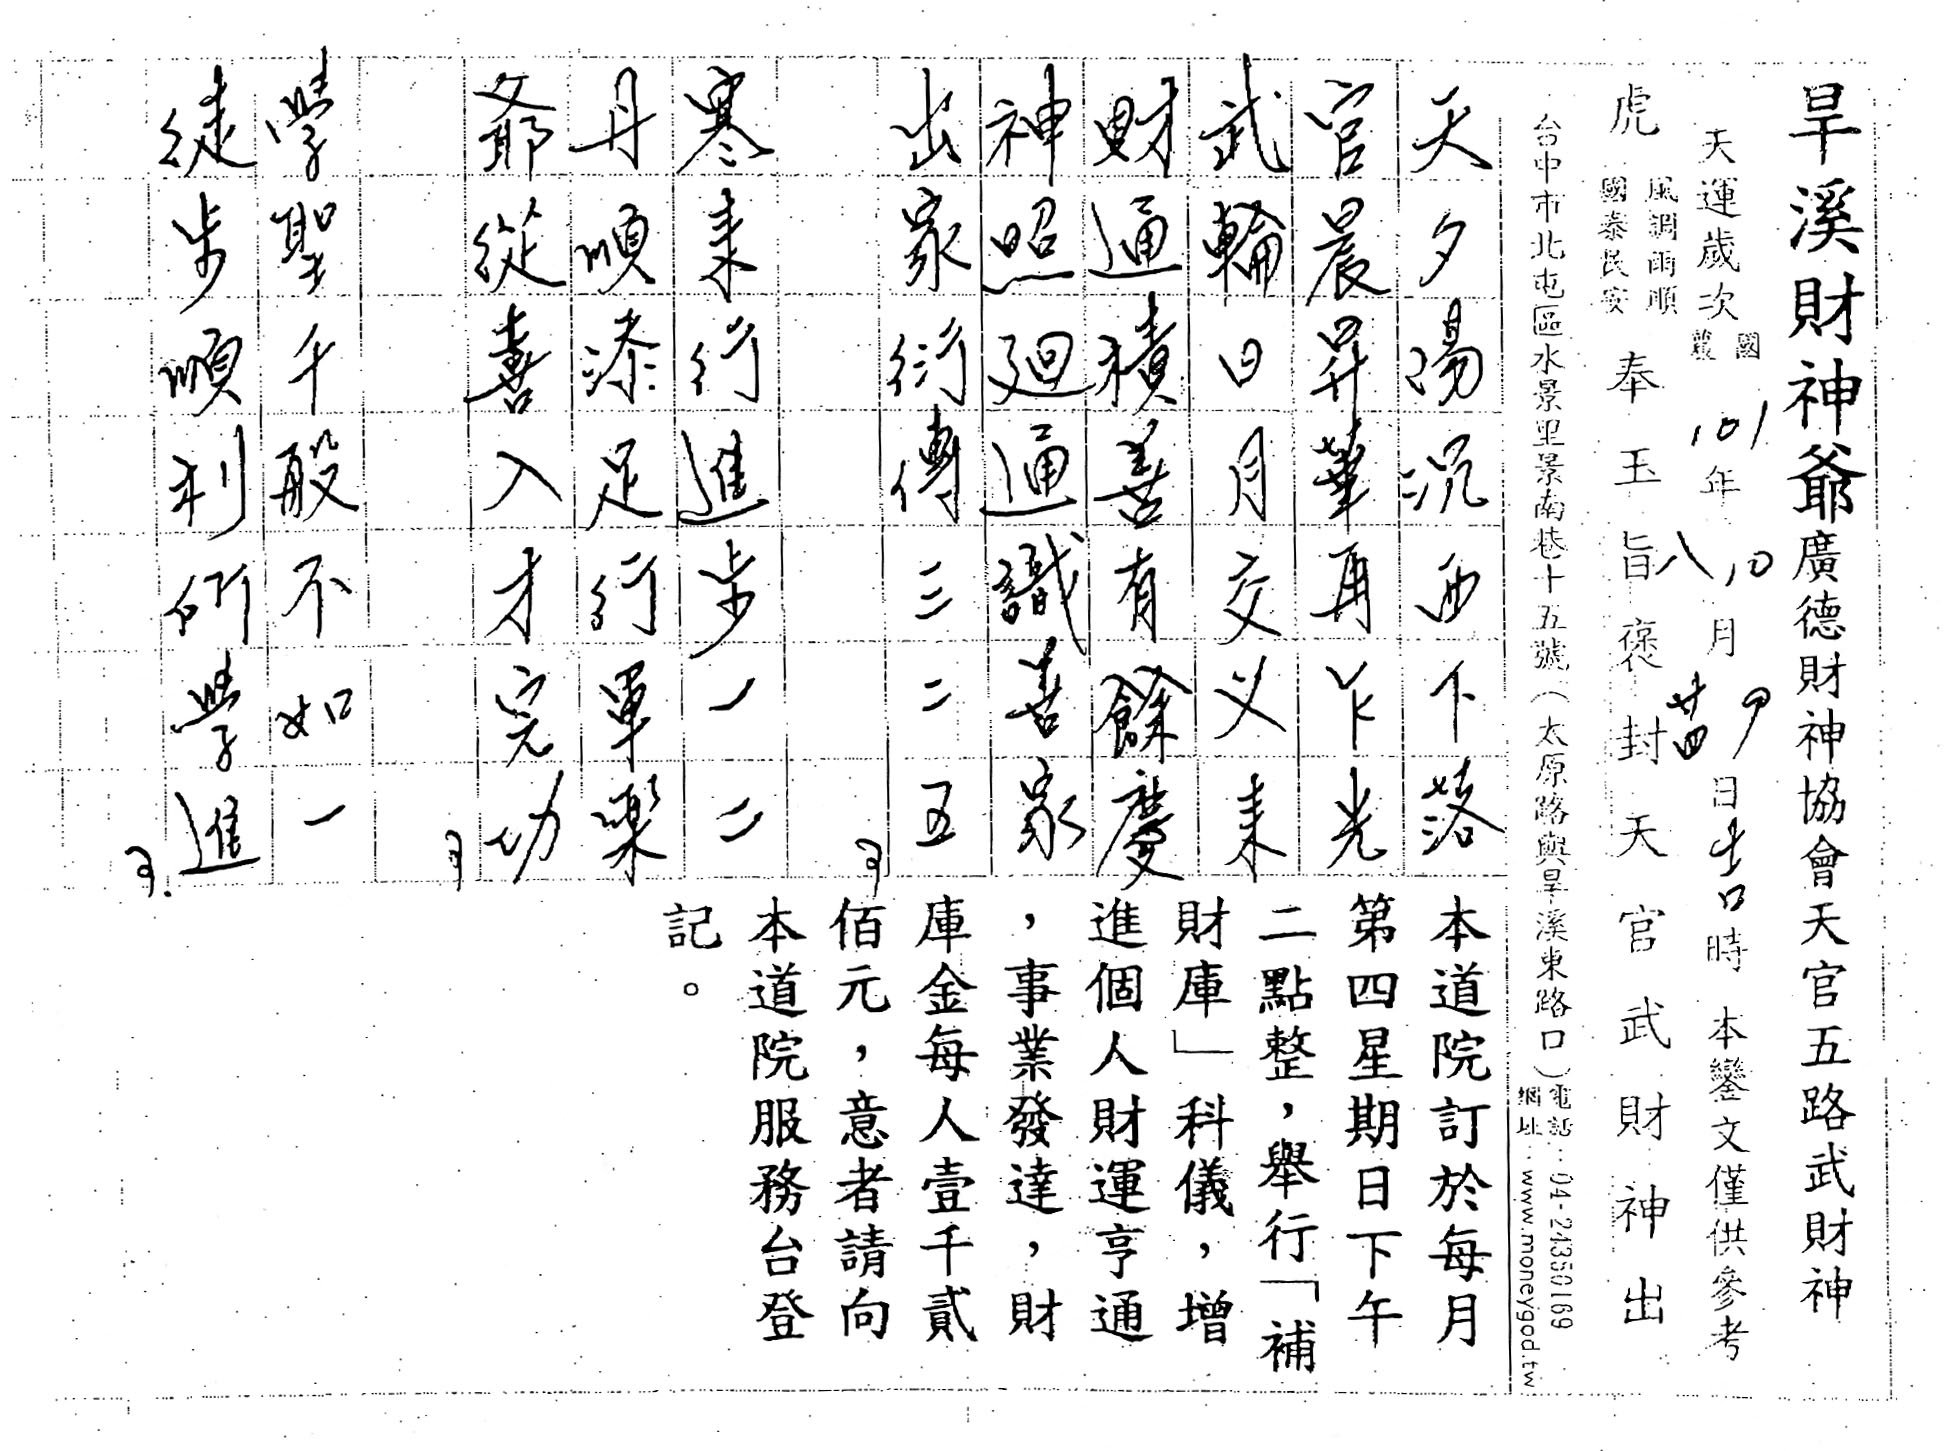 旱溪財神爺廣德財神協會天官五路武財神
天運歲次 國 101年10月9日 吉時 本鑾文僅供參考
農 八 廿四
風調雨順
國泰民安
虎 奉玉旨褒封天官武財神出
台中市北屯區水景里景南巷十五號(太原路與旱溪東路口)
電話:04-24350169
網址:www.moneygod.tw
天夕陽沉西下落
官晨昇華再乍光
武輪日月交义来
財通積善有餘慶
神照迴通識善家
出家衍傳三二五
寒来行進步一二
丹順漆足行單樂
爺從喜入才完功
學聖千般不如一
徒步順利所學進
本道院訂於每月
第四星期日下午
二點整,舉行「補
財庫」科儀,增
進個人財運亨通
,事業發達,財
庫金每人壹千貳
佰元,意者請向
本道院服務台登
記。